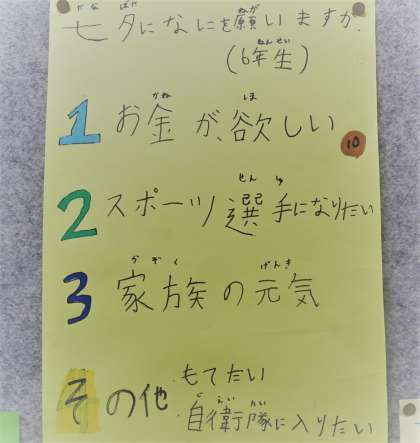 七夕になにを願いますか。
(6年生)
1 お金が、欲しい
10
2 スポーツ選手になりたい
3 家族の元気
その他 ・もてたい
・自衛隊に入りたい